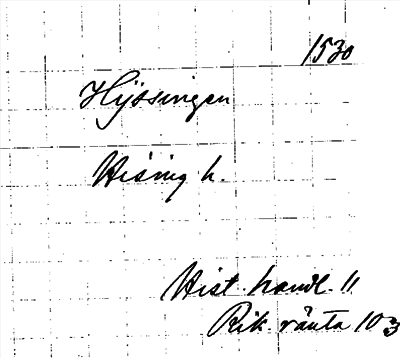 1530
Hijssingen
Hising h.
Hist. handl. 11
Rik. ränta 103